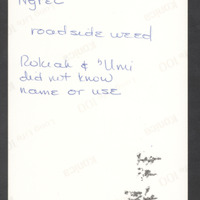 roadside weed
Rokiah & "Umi
did not know
name or use